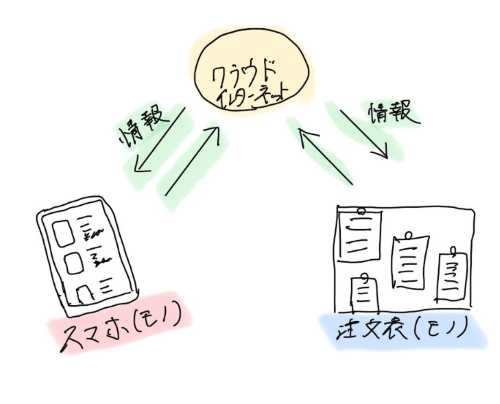 クラウド
インターネット
情報
情報
スマホ(モノ)
注文表(モノ)